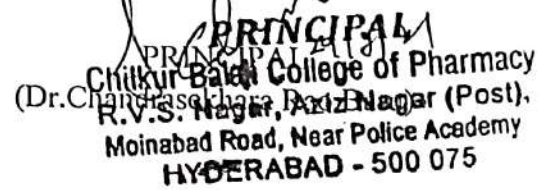 PRINCIPAL
PRINCIPAL
Chilkur Balaji College of Pharmacy
(Dr.Chandrasekhara Rao
R.V.S. Nagar, Aziz Nagar (Post),
Moinabad Road, Near Police Academy
HYDERABAD - 500 075